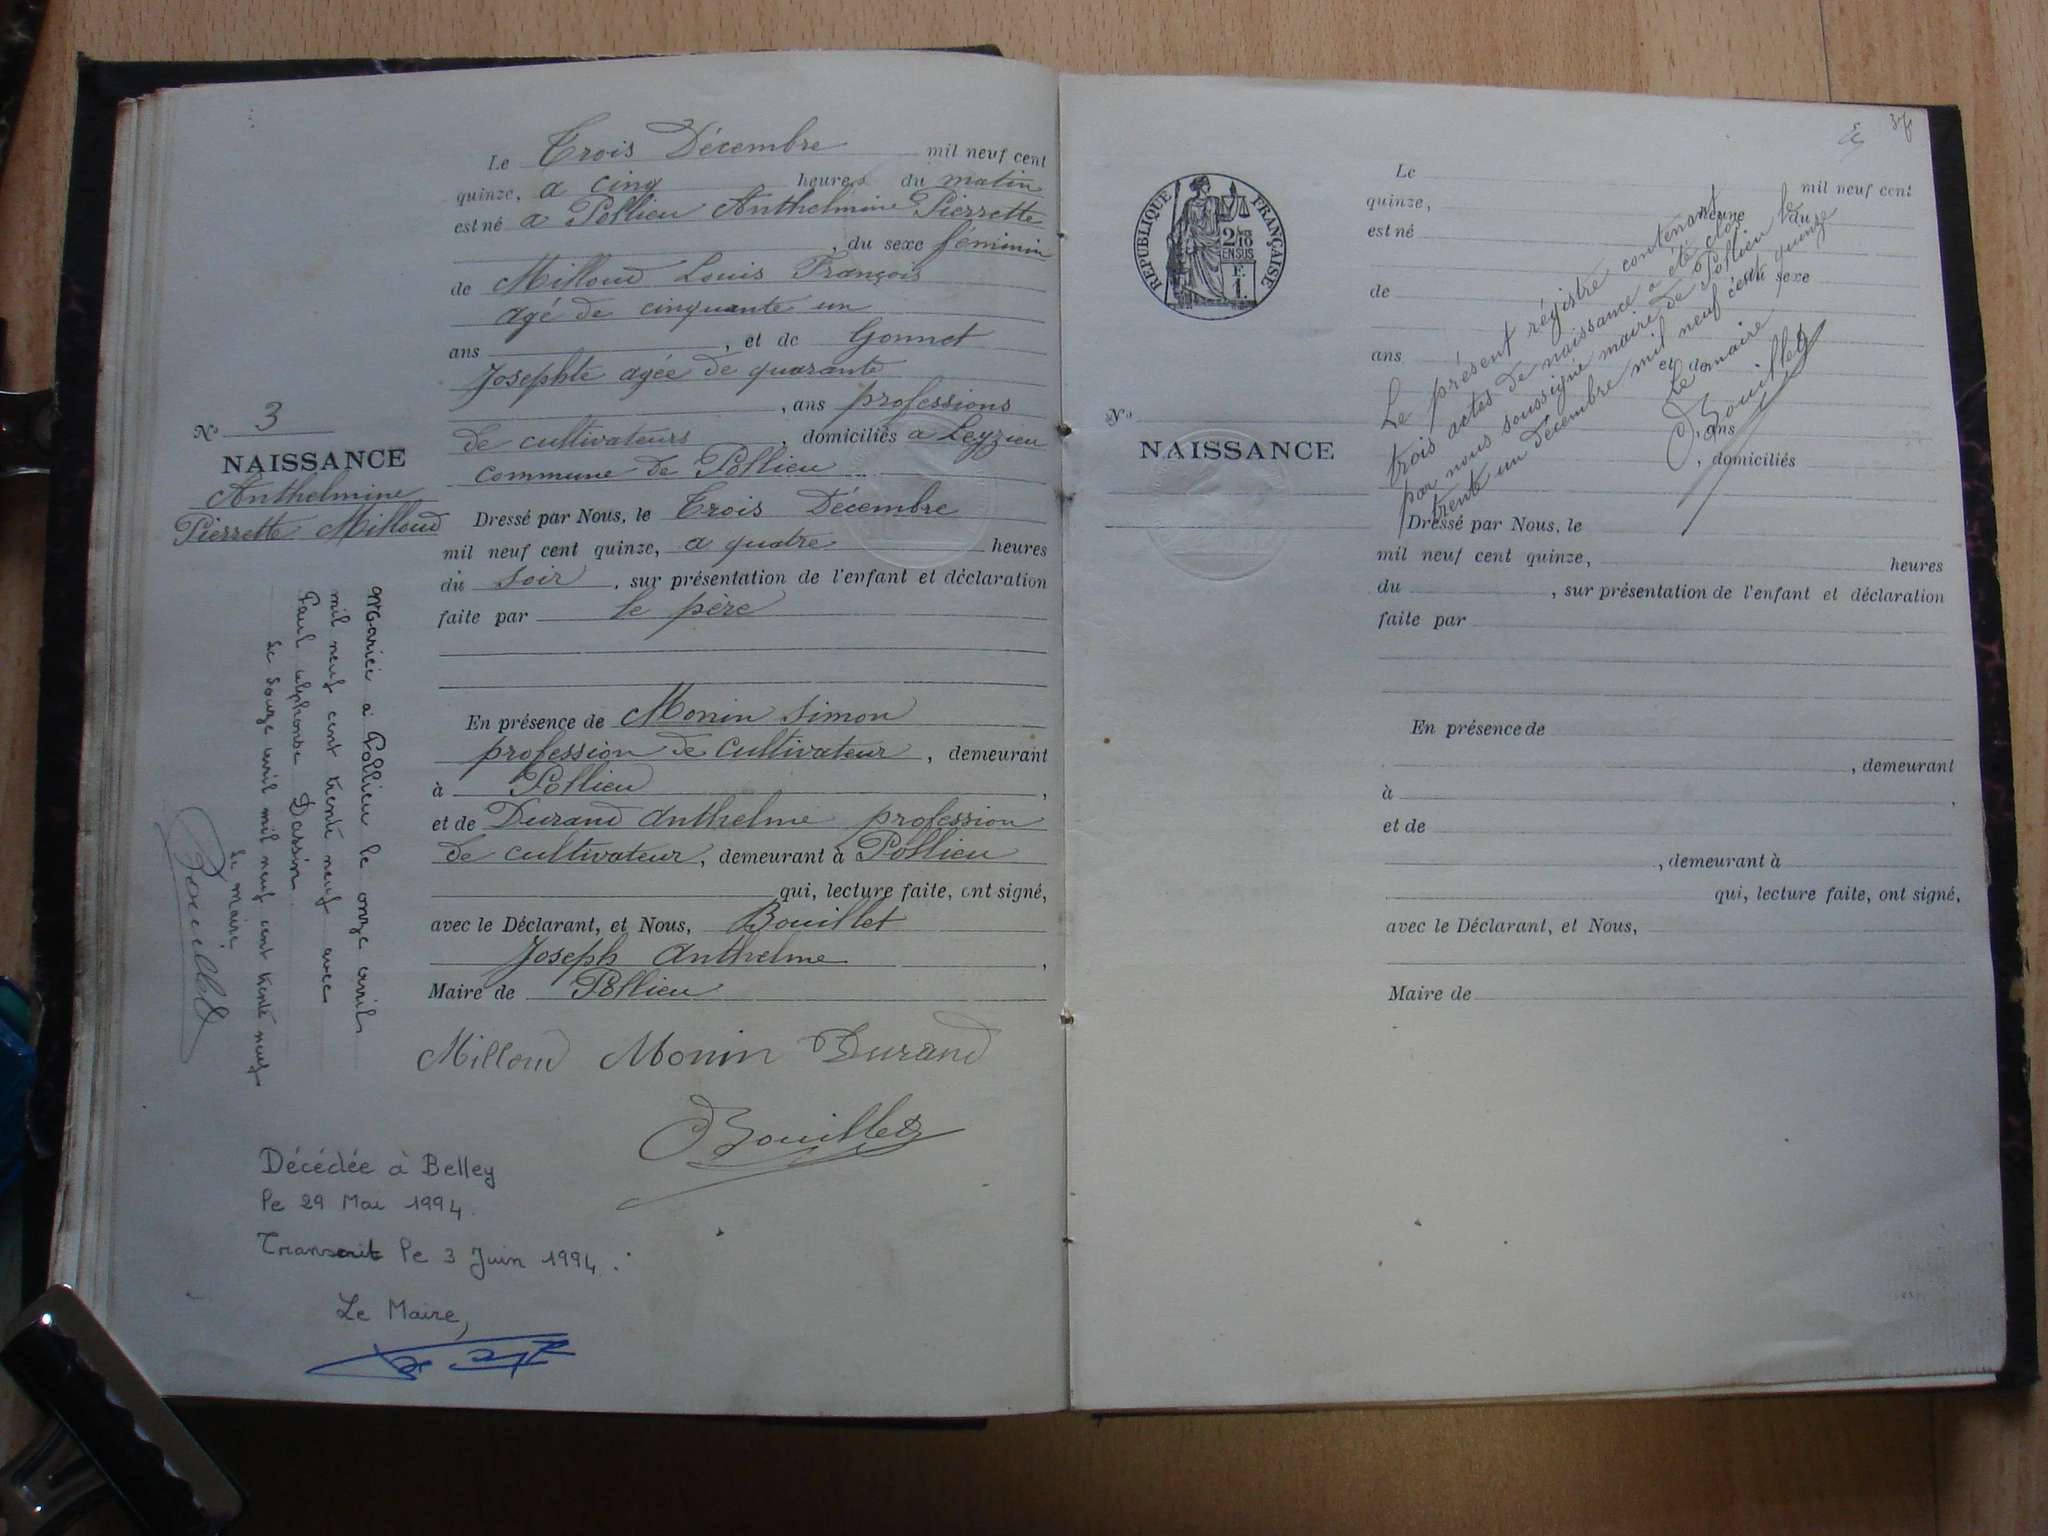 Le Trois Décembre mil neuf cent
quinze, a cinq heures du matin
est né a Pollieu Anthelmine Pierrette
, du sexe féminin
de Milloud Louis François
agé de cinquante un
ans , et de Gonnet
Josephte agée de quarante
, ans professions
de cultivateurs , domiciliés a Leyzieu
commune de Pollieu
Dressé par Nous, le Trois Décembre
mil neuf cent quinze, a quatre heures
du soir , sur présentation de l'enfant et déclaration
faite par le père
En présence de Monin Simon
profession de cultivateur , demeurant
à Pollieu ,
et de Durand Anthelme profession
de cultivateur, demeurant à Pollieu
qui, lecture faite, ont signé,
avec le Déclarant, et Nous, Bouillet
Joseph Anthelme ,
Maire de Pollieu
Milloud Monin Durand
Bouillet
No 3
NAISSANCE
Anthelmine
Pierrette Milloud
Mariée à Pollieu le onze avril
mil neuf cent trente neuf avec
Paul Alphonse Dassin
Le douze avril mil neuf cent trente neuf
Le maire,
Bouillet
Décédée à Belley
le 29 Mai 1994.
Transcrit le 3 Juin 1994.
Le Maire,
RÉPUBLIQUE FRANÇAISE
2/10
EN SUS
F.
1.
No
NAISSANCE
Le mil neuf cent
quinze, heure du
est né
du sexe
de
ans et de
, ans
, domiciliés
Le présent régistre contenant
trois actes de naissance a été clos
par nous soussigné maire de Pollieu le
trente un décembre mil neuf cent quinze
Le maire
Bouillet
Dressé par Nous, le
mil neuf cent quinze, heures
du , sur présentation de l'enfant et déclaration
faite par
En présence de
, demeurant
à ,
et de
, demeurant à
qui, lecture faite, ont signé,
avec le Déclarant, et Nous,
Maire de